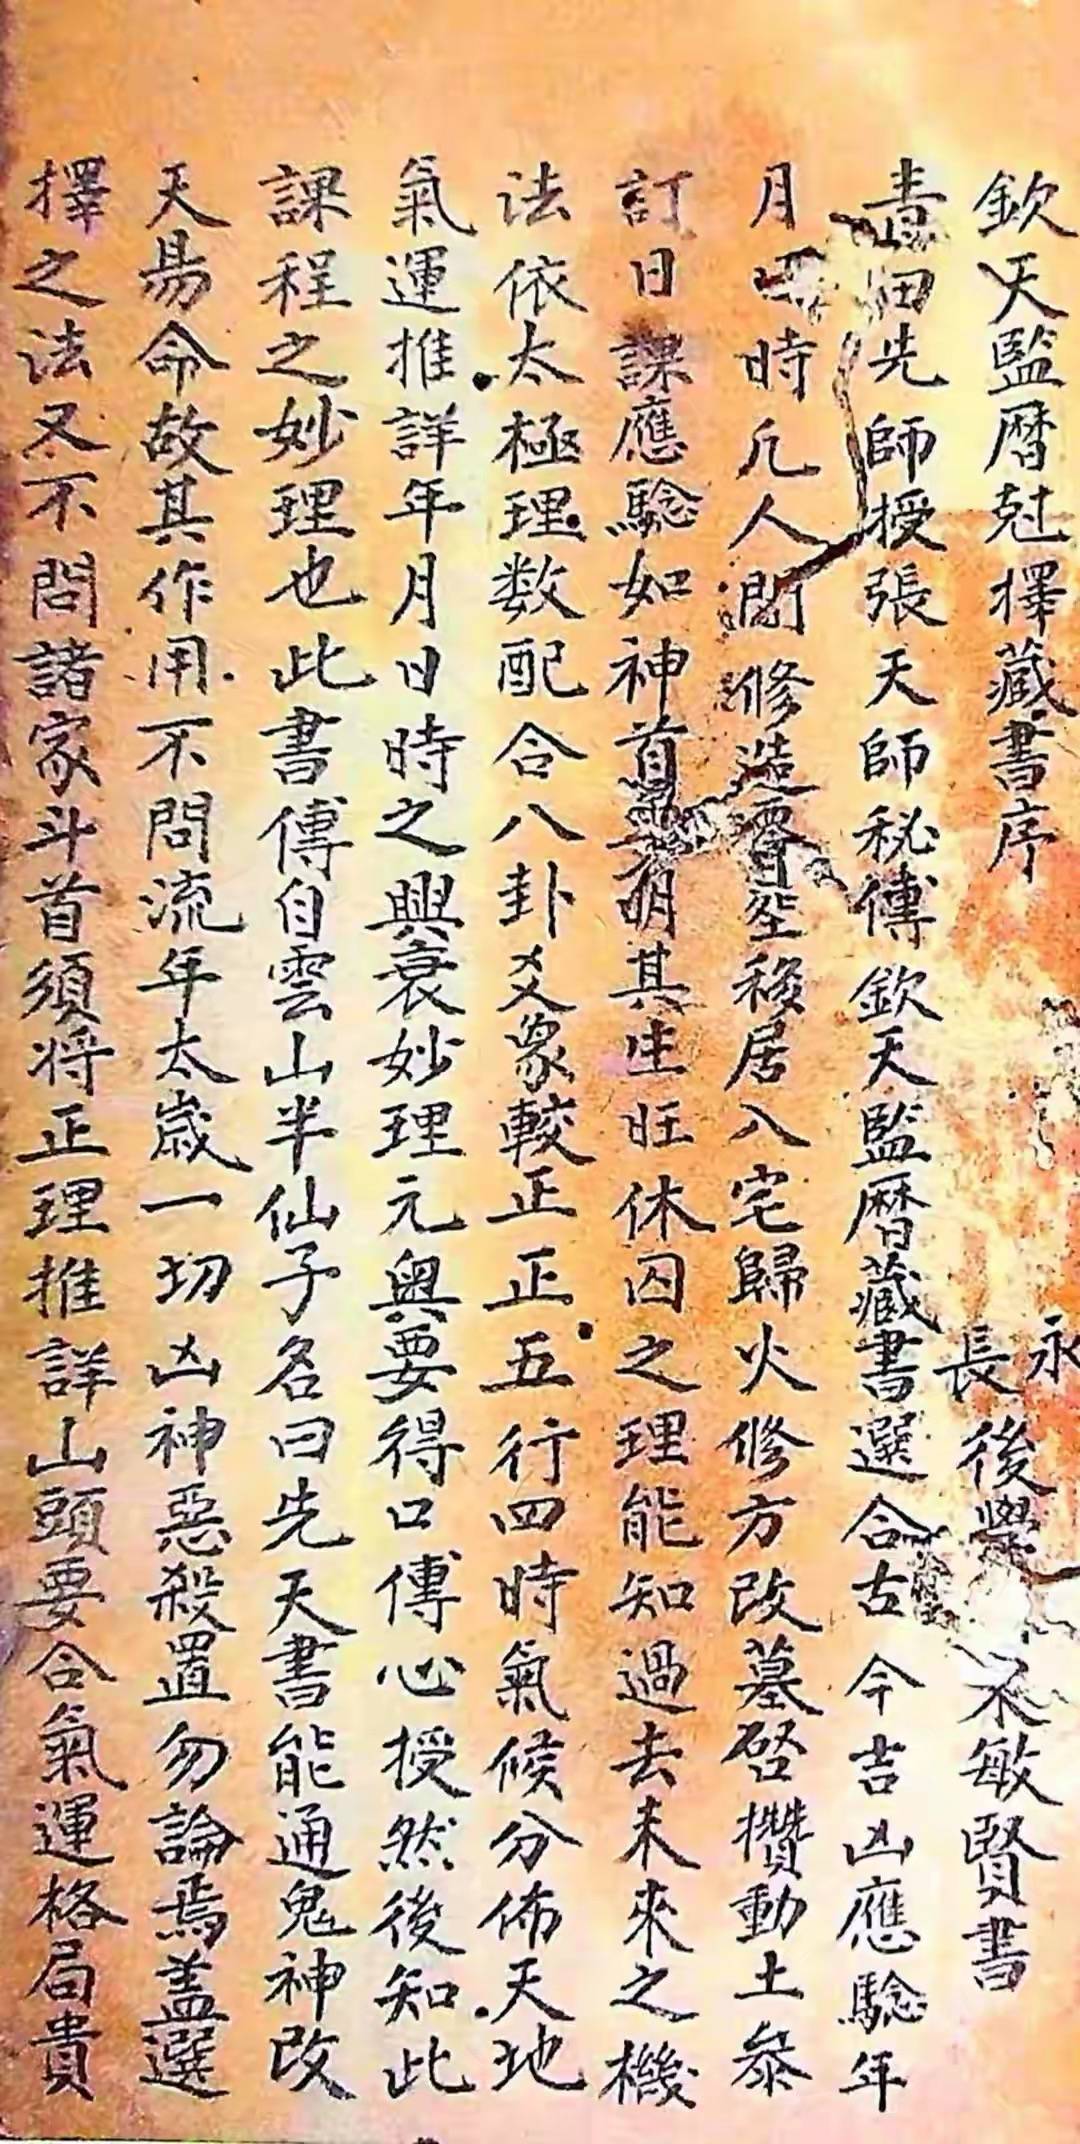 欽天監曆尅擇藏書序
永長後學 不敏賢書
青田先師授張天師秘傳欽天監曆藏書選合古今吉凶應驗年
月日時凡人間修造埋移居入宅歸火修方改墓啓攢動土叅
訂日課應驗如神首明其生旺休囚之理能知過去未來之機
法依太極理数配合八卦爻象較正正五行四時氣候分佈天地
氣運推詳年月日時之興衰妙理元奧要得口傳心授然後知此
課程之妙理也此書傳自雲山半仙子名曰先天書能通鬼神改
天易命故其作用不問流年太歲一切凶神惡殺置勿論焉盖選
擇之法又不問諸家斗首須将正理推詳山頭要合氣運格局貴